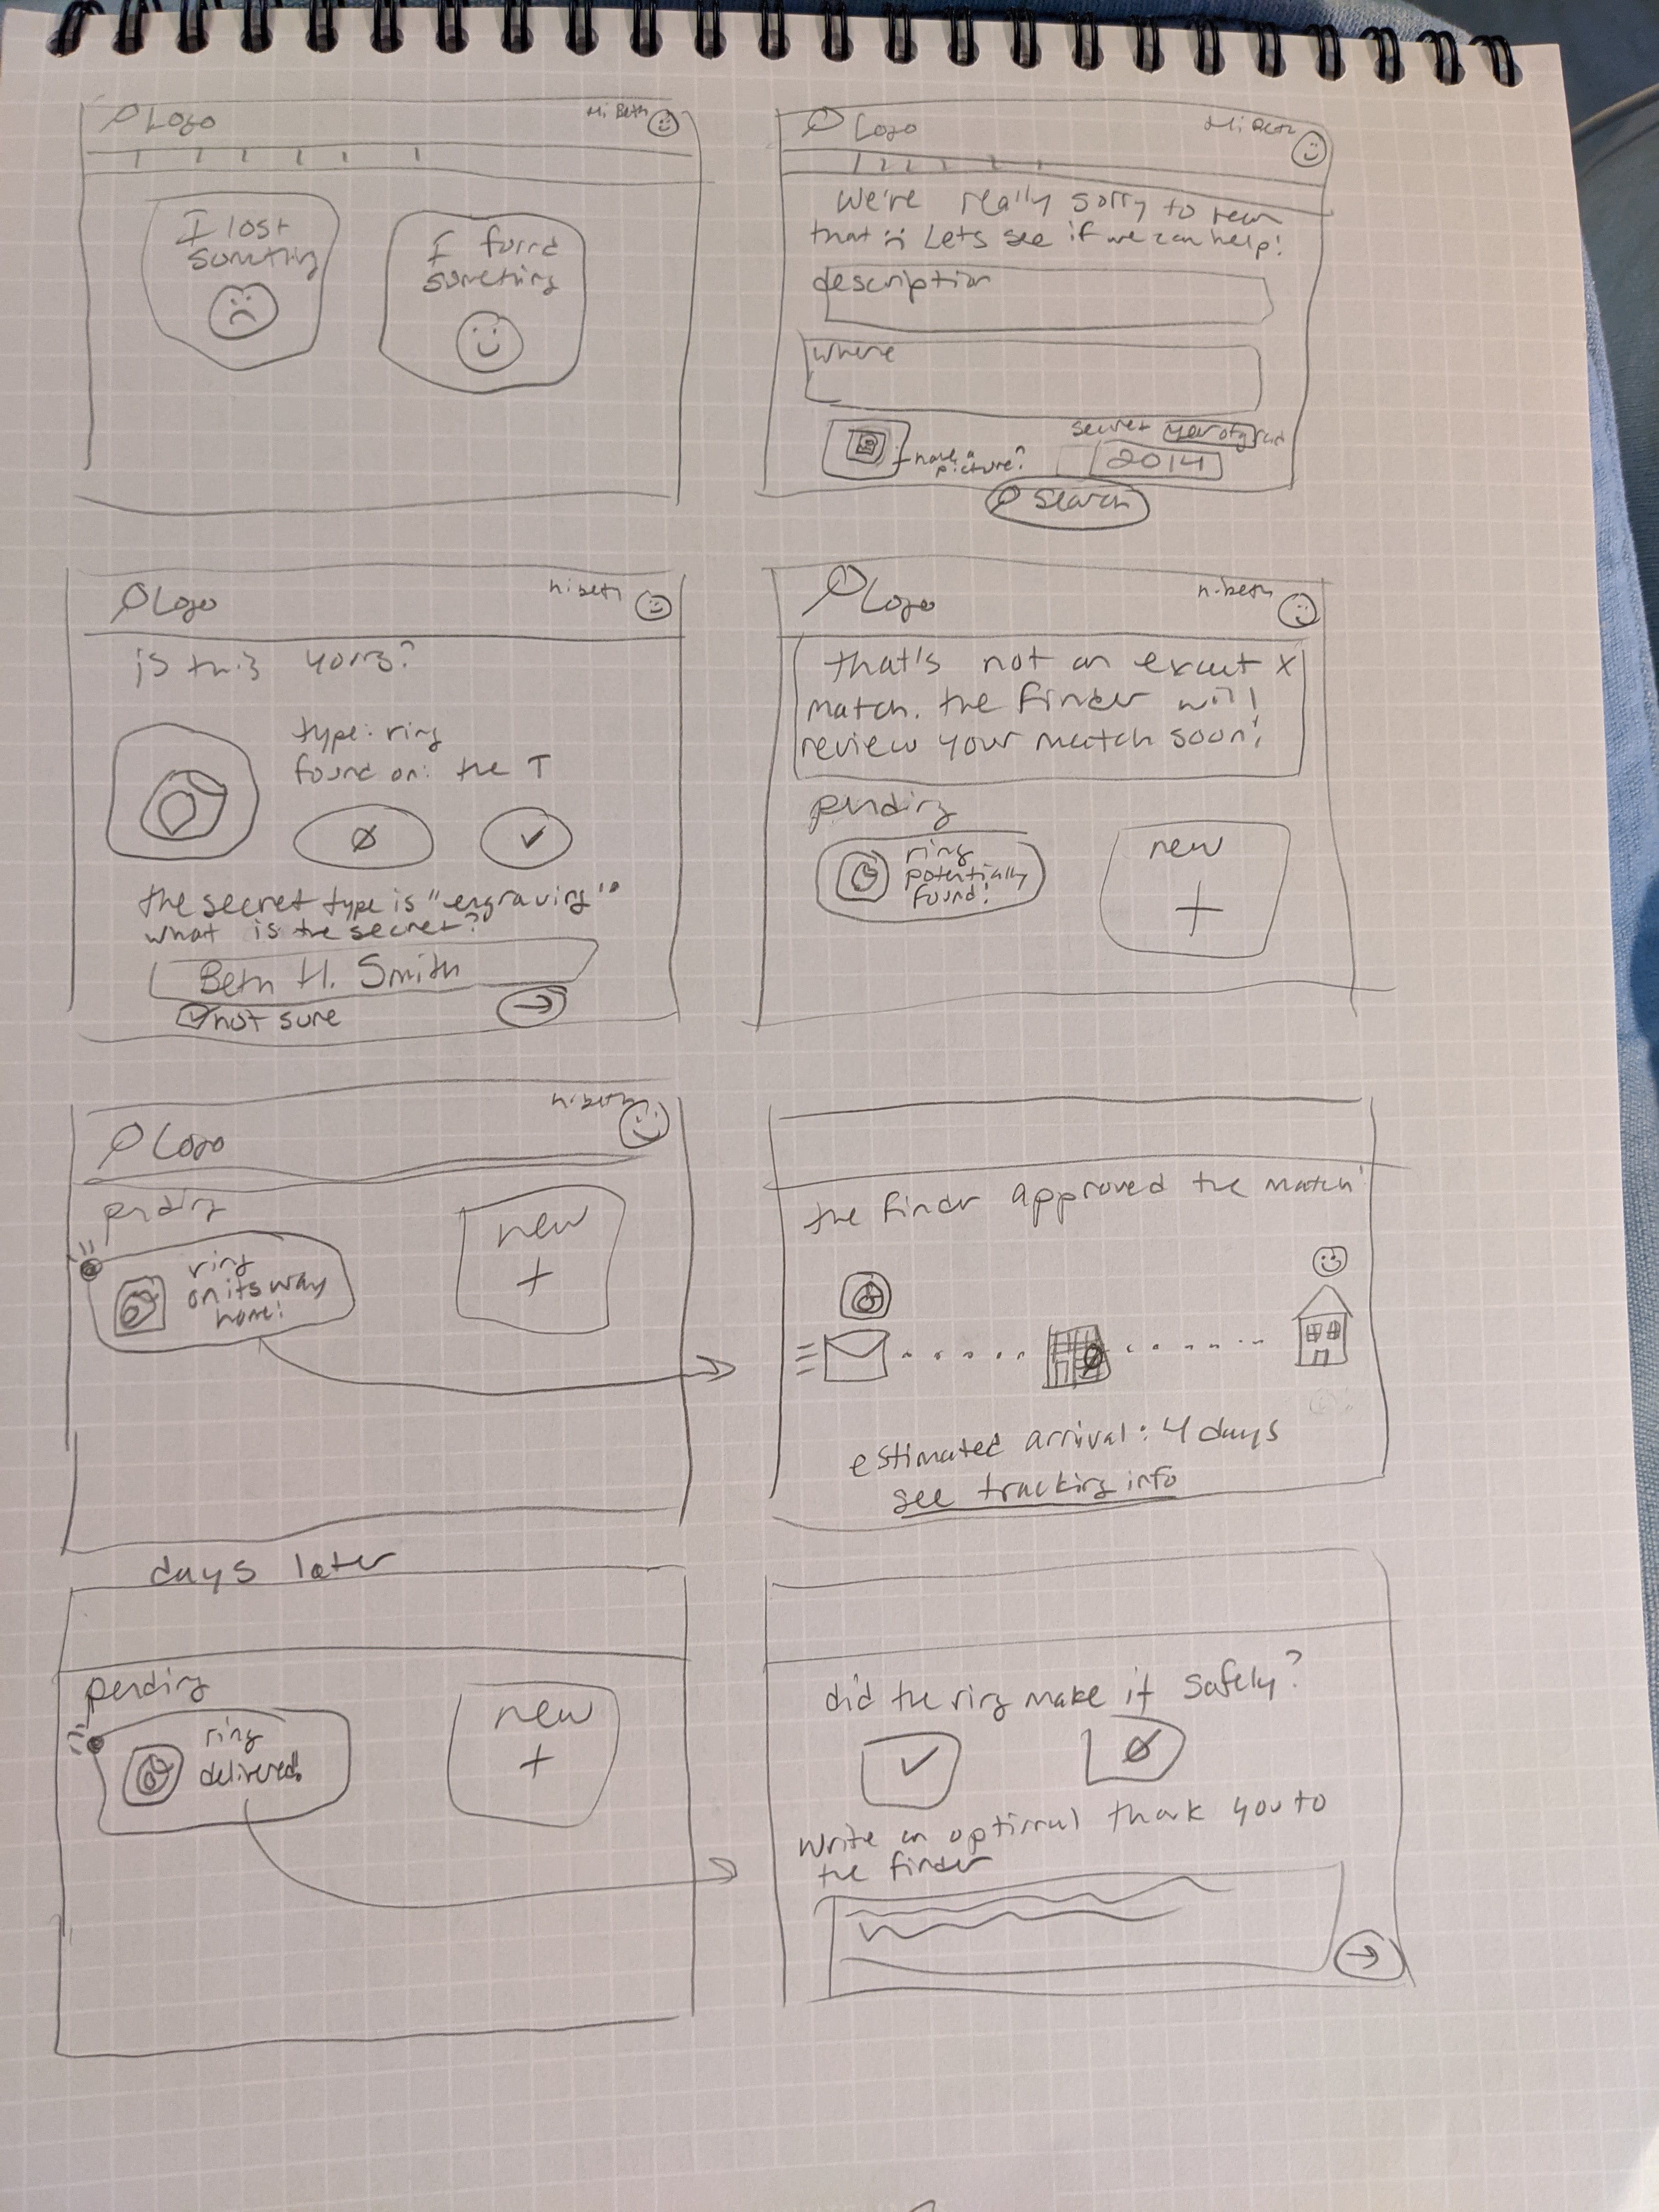 Logo
Hi Beth
I lost
something
I found
something
Logo
Hi Beth
We're really sorry to hear
that :( Lets see if we can help!
description
where
have a
picture?
secret year of grad
2014
search
Logo
hi beth
is this yours?
type: ring
found on: the T
the secret type is "engraving"
what is the secret?
Beth H. Smith
not sure
Logo
hi beth
that's not an exact x
match. the finder will
review your match soon!
pending
ring
potentially
found!
new
+
Logo
hi beth
pending
ring
on its way
home!
new
+
the finder approved the match!
estimated arrival: 4 days
see tracking info
days later
pending
ring
delivered!
new
+
did the ring make it safely?
write an optional thank you to
the finder